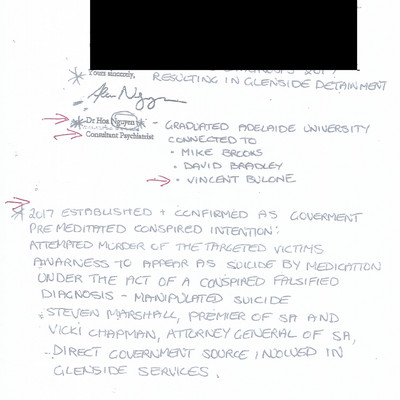 Yours sincerely,
RESULTING IN GLENSIDE DETAINMENT
Dr Hoa Nguyen - GRADUATED ADELAIDE UNIVERSITY
Consultant Psychiatrist CONNECTED TO
• MIKE BROOKS
• DAVID BRADLEY
• VINCENT BULONE
2017 ESTABLISHED + CONFIRMED AS GOVERMENT
PREMEDITATED CONSPIRED INTENTION:
ATTEMPTED MURDER OF THE TARGETED VICTIMS
AWARNESS TO APPEAR AS SUICIDE BY MEDICATION
UNDER THE ACT OF A CONSPIRED FALSIFIED
DIAGNOSIS - MANIPULATED SUICIDE
STEVEN MARSHALL, PREMIER OF SA AND
VICKI CHAPMAN, ATTORNEY GENERAL OF SA,
DIRECT GOVERNMENT SOURCE INVOLVED IN
GLENSIDE SERVICES.